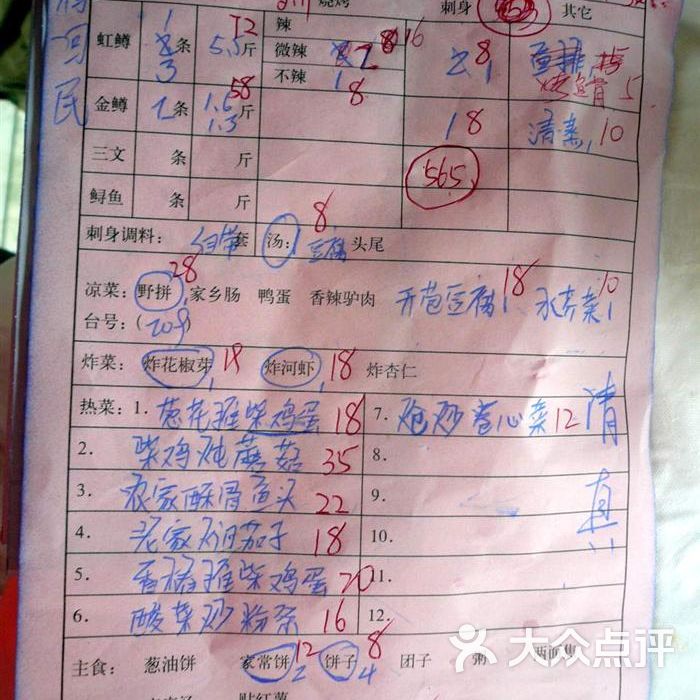 烧烤 刺身 其它
虹鳟 条 5.5斤 72 辣 微辣 不辣 1 8 16 2 8 1 5
金鳟 1条 1.6 1.3 斤 58 8 1 8 清蒸, 10
三文 条 斤 565
鲟鱼 条 斤
刺身调料: 自带 套 汤: 豆腐 8 头尾
凉菜: 野拼 28 家乡肠 鸭蛋 香辣驴肉 开苞豆腐1 18 水芥菜1 10
台号:(209)
炸菜: 炸花椒芽, 18 炸河虾, 18 炸杏仁
热菜: 1. 葱花摊柴鸡蛋 18 7. 炝炒卷心菜 12 清真
2. 柴鸡炖蘑菇 35 8.
3. 农家酥骨鱼头 22 9.
4. 农家焖茄子 18 10.
5. 香椿摊柴鸡蛋 20 11.
6. 酸菜炒粉条 16 12.
主食: 葱油饼 家常饼 2 12 饼子 4 8 团子 粥
贴红薯
大众点评